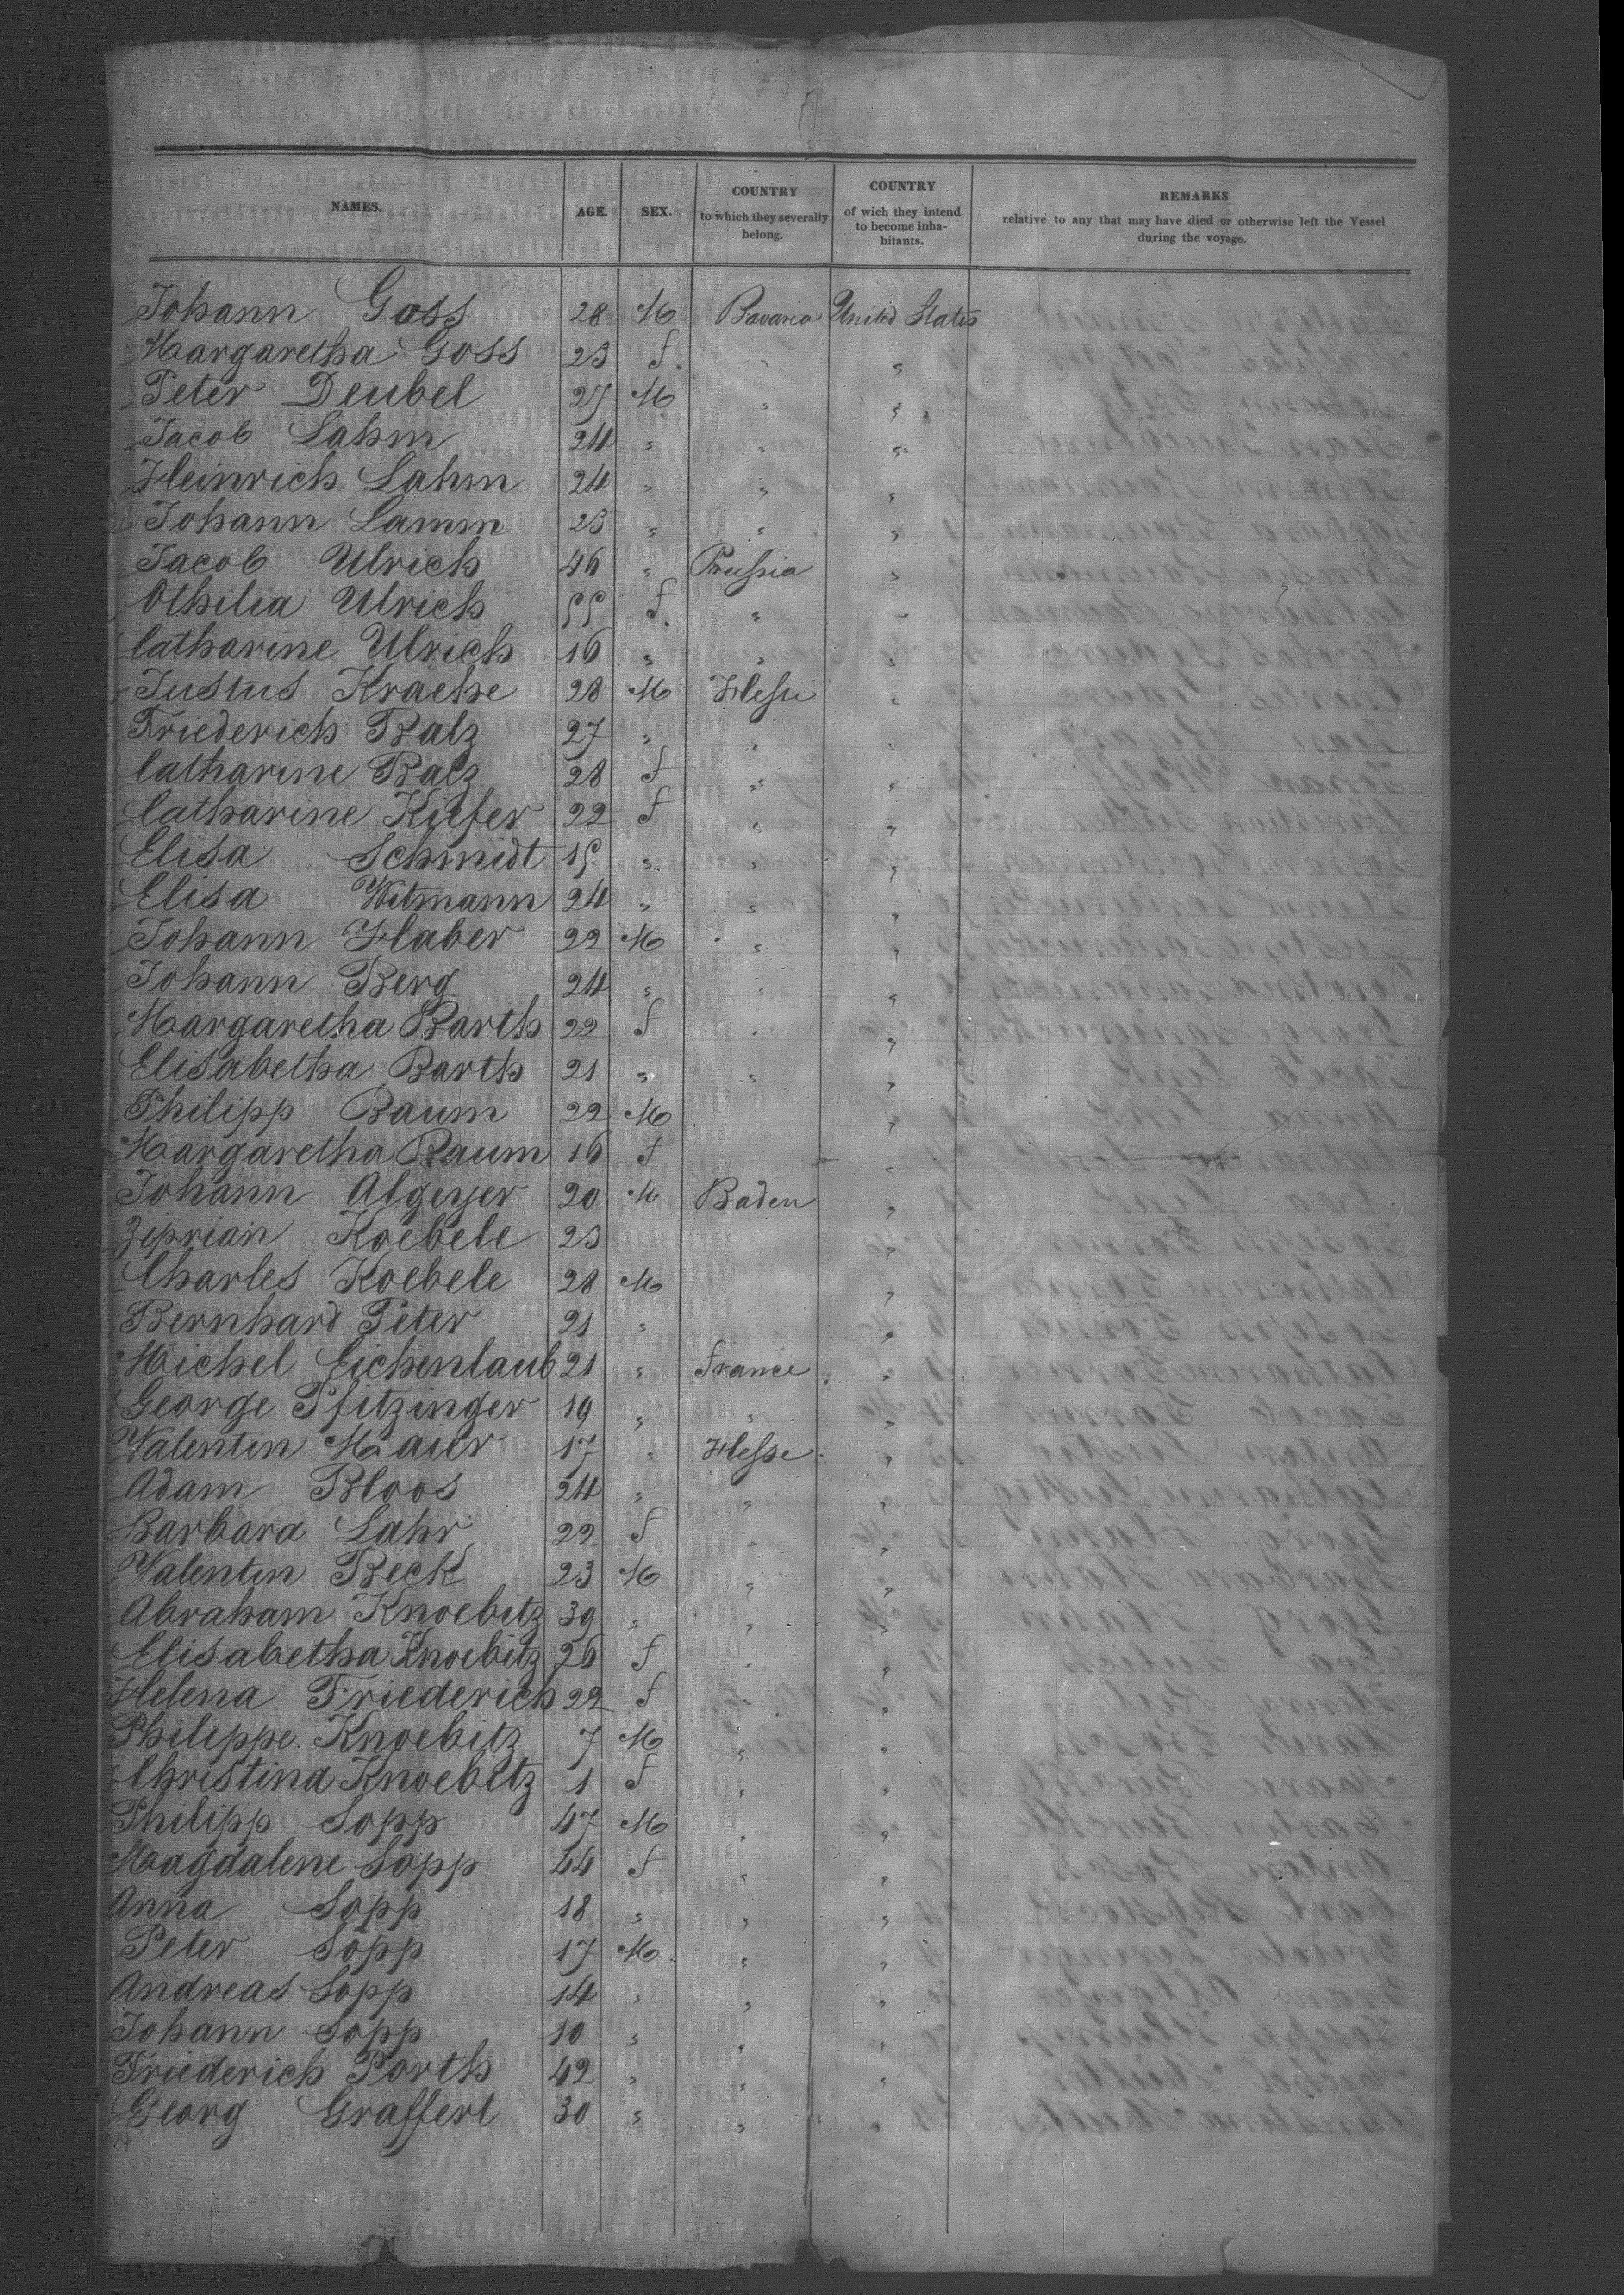 NAMES. AGE. SEX. COUNTRY to which they severally belong. COUNTRY of wich they intend to become inhabitants. REMARKS relative to any that may have died or otherwise left the Vessel during the voyage.
Johann Goss 28 M Bavaria United States
Margaretha Goss 23 f. " "
Peter Deubel 27 M " "
Jacob Lahm 24 " " "
Heinrich Lahm 24 " " "
Johann Lamm 23 " " "
Jacob Ulrich 46 " Prussia "
Othilia Ulrich 55 f. " "
Catharine Ulrich 16 " " "
Justus Kraehe 28 M Hesse "
Friederich Balz 27 " " "
Catharine Balz 28 f " "
Catharine Kiefer 22 f " "
Elisa Schmidt 15 " " "
Elisa Witmann 24 " " "
Johann Haber 22 M " "
Johann Berg 24 " " "
Margaretha Barth 22 f " "
Elisabetha Barth 21 " " "
Philipp Baum 22 M "
Margaretha Baum 16 f "
Johann Algeyer 20 M Baden "
Ziprian Koebele 23 "
Charles Koebele 28 M "
Bernhard Peter 21 " "
Michel Eichenlaub 21 " France "
George Pfitzinger 19 " " "
Valentin Maur 17 " Hesse "
Adam Bloos 24 " " "
Barbara Lahr 22 f " "
Valentin Beck 23 M " "
Abraham Knoebitz 39 " " "
Elisabetha Knoebitz 26 f " "
Helena Friederich 22 f " "
Philippe Knoebitz 7 M " "
Christina Knoebitz 1 f " "
Philipp Sopp 47 M " "
Magdalene Sopp 44 f " "
Anna Sopp 18 " " "
Peter Sopp 17 M " "
Andreas Sopp 14 " " "
Johann Sopp 10 " " "
Friederich Porth 42 " " "
Georg Graffert 30 " " "